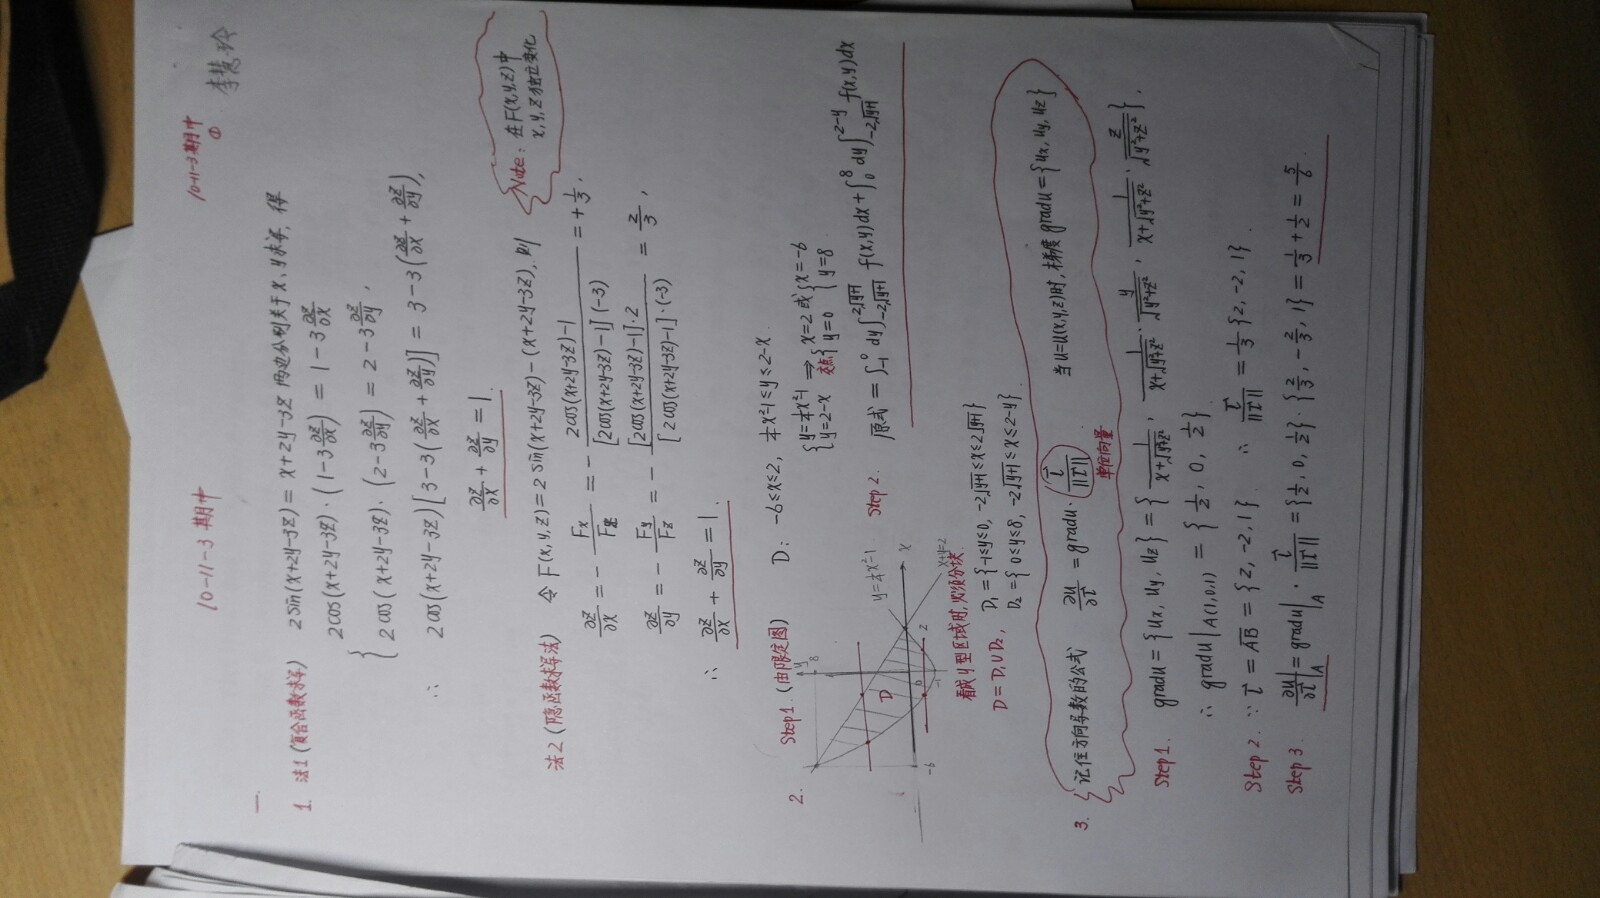 10-11-3期中
10-11-3期中
①
李慧玲
一.
1. 法1(复合函数求导) 2sin(x+2y-3z)=x+2y-3z 两边分别关于x、y求导,得
{ 2cos(x+2y-3z)·(1-3∂z/∂x)=1-3∂z/∂x
2cos(x+2y-3z)·(2-3∂z/∂y)=2-3∂z/∂y,
∴ 2cos(x+2y-3z)[3-3(∂z/∂x+∂z/∂y)]=3-3(∂z/∂x+∂z/∂y),
∂z/∂x+∂z/∂y=1.
法2(隐函数求导法) 令F(x,y,z)=2sin(x+2y-3z)-(x+2y-3z),则
Note: 在F(x,y,z)中
x,y,z独立变化
∂z/∂x=-Fx/Fz=-(2cos(x+2y-3z)-1)/([2cos(x+2y-3z)-1](-3))=+1/3,
∂z/∂y=-Fy/Fz=-([2cos(x+2y-3z)-1]·2)/([2cos(x+2y-3z)-1]·(-3))=2/3,
∴ ∂z/∂x+∂z/∂y=1.
2. Step1.(由限定图) D: -6≤x≤2, ¼x²-1≤y≤2-x.
{y=¼x²-1 ⇒ {x=2 或 {x=-6
{y=2-x 交点 {y=0 {y=8
y
8
y=¼x²-1
D
x
-6
0
2
-1
x+y=2
看成Y型区域时,必须分块
D=D₁∪D₂, D₁={-1≤y≤0, -2√(y+1)≤x≤2√(y+1)}
D₂={0≤y≤8, -2√(y+1)≤x≤2-y}
Step 2. 原式=∫₋₁⁰dy∫_{-2√(y+1)}^{2√(y+1)} f(x,y)dx+∫₀⁸dy∫_{-2√(y+1)}^{2-y} f(x,y)dx
3. {记住方向导数的公式 ∂u/∂l⃗=gradu·(l⃗/||l⃗||) 当u=u(x,y,z)时,梯度gradu={ux,uy,uz}
单位向量
Step 1. gradu={ux,uy,uz}={1/(x+√(y²+z²)), 1/(x+√(y²+z²))·y/√(y²+z²), 1/(x+√(y²+z²))·z/√(y²+z²)},
∴ gradu|A(1,0,1)={½,0,½}.
Step 2. ∵ l⃗=AB={2,-2,1} ∴ l⃗/||l⃗||=⅓{2,-2,1}.
Step 3. ∂u/∂l⃗|A=gradu|A·l⃗/||l⃗||={½,0,½}·{⅔,-⅔,⅓}=⅓+½=⅚.